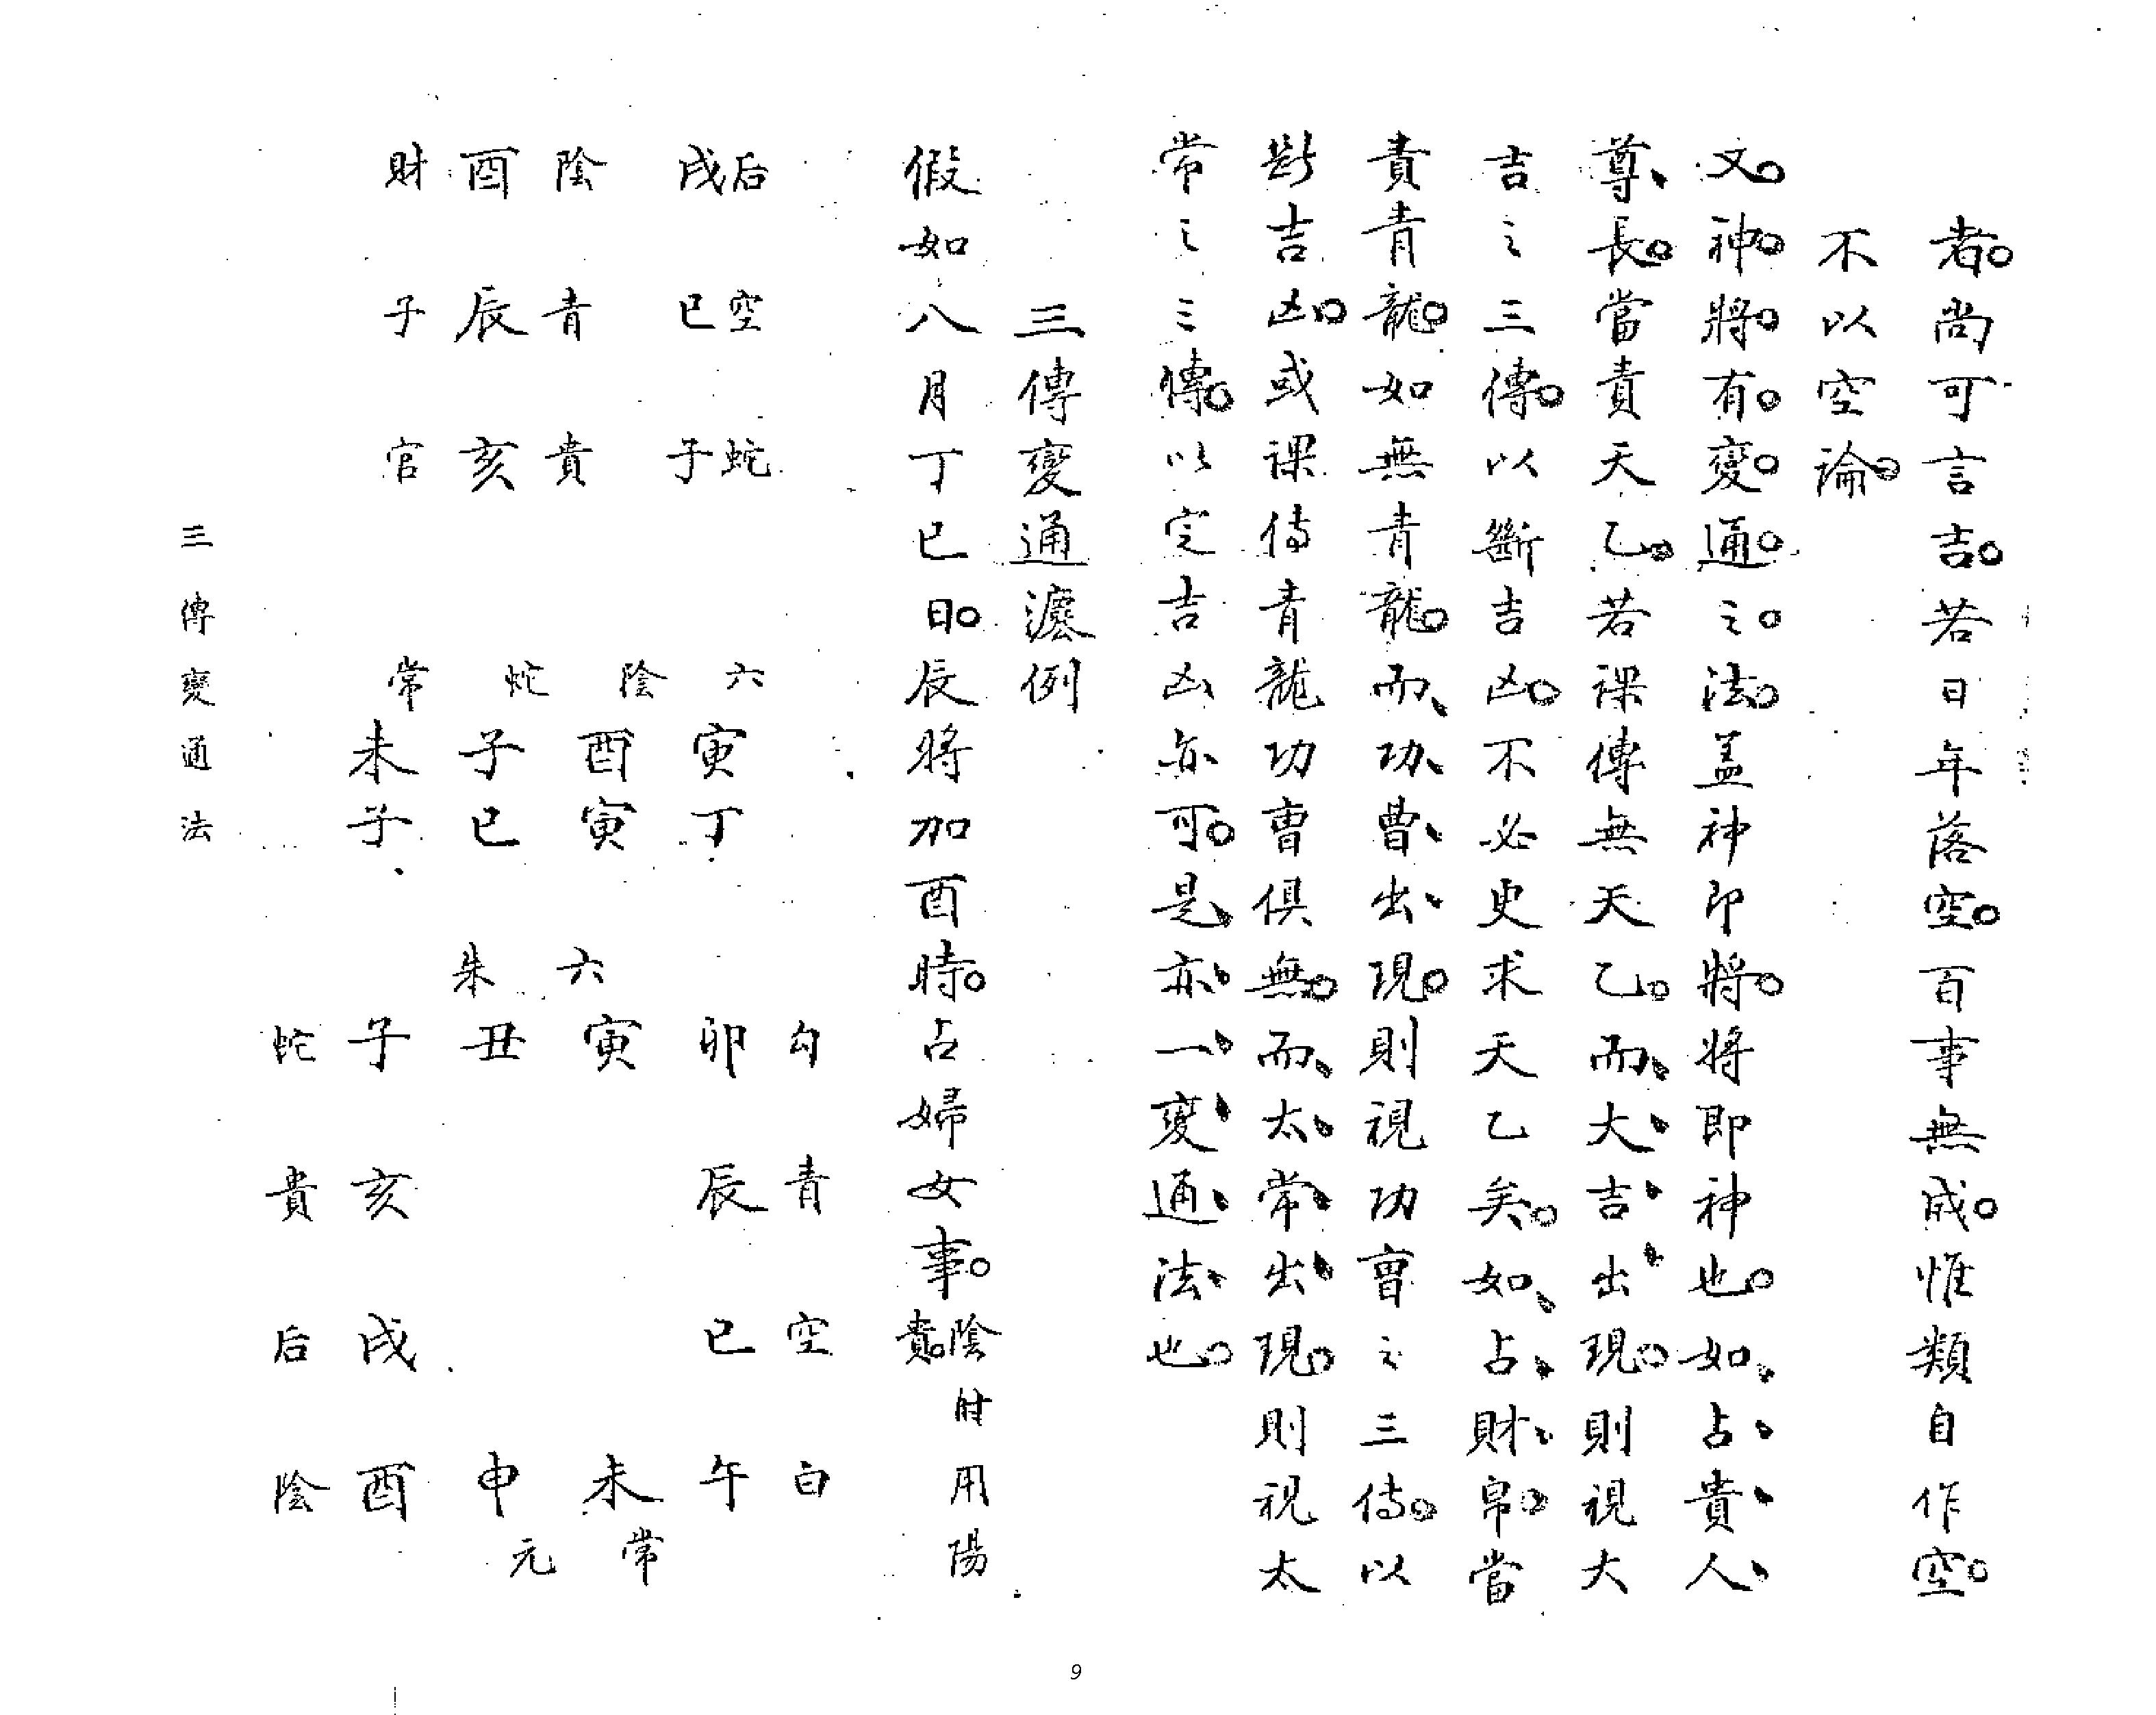 者。尚可言吉。若日年落空。百事無成。惟類自作空。
不以空論。
文神將有變通之法。盖神即將。將即神也。如占貴人
尊長。當責天乙。若課傳無天乙。而大吉出現。則視大
吉之三傳。以斷吉凶。不必更求天乙矣。如占財帛。當
責青龍。如無青龍。而功曹出現。則視功曹之三傳。以
斷吉凶。或課傳青龍功曹俱無。而太常出現。則視太
常之三傳。以定吉凶亦可。是亦一變通法也。
三傳變通灋例
假如八月丁巳日。辰將加酉時。占婦女事。陰時用陽貴。
財 酉 陰 戌 后
子 辰 青 巳 空
官 亥 貴 子 蛇
常 蛇 陰 六
未 子 酉 寅
子 巳 寅 丁
朱 六
蛇 子 丑 寅 卯 勾
貴 亥 辰 青
后 戌 巳 空
陰 酉 申 未 午 白
元 常
三傳變通法
9